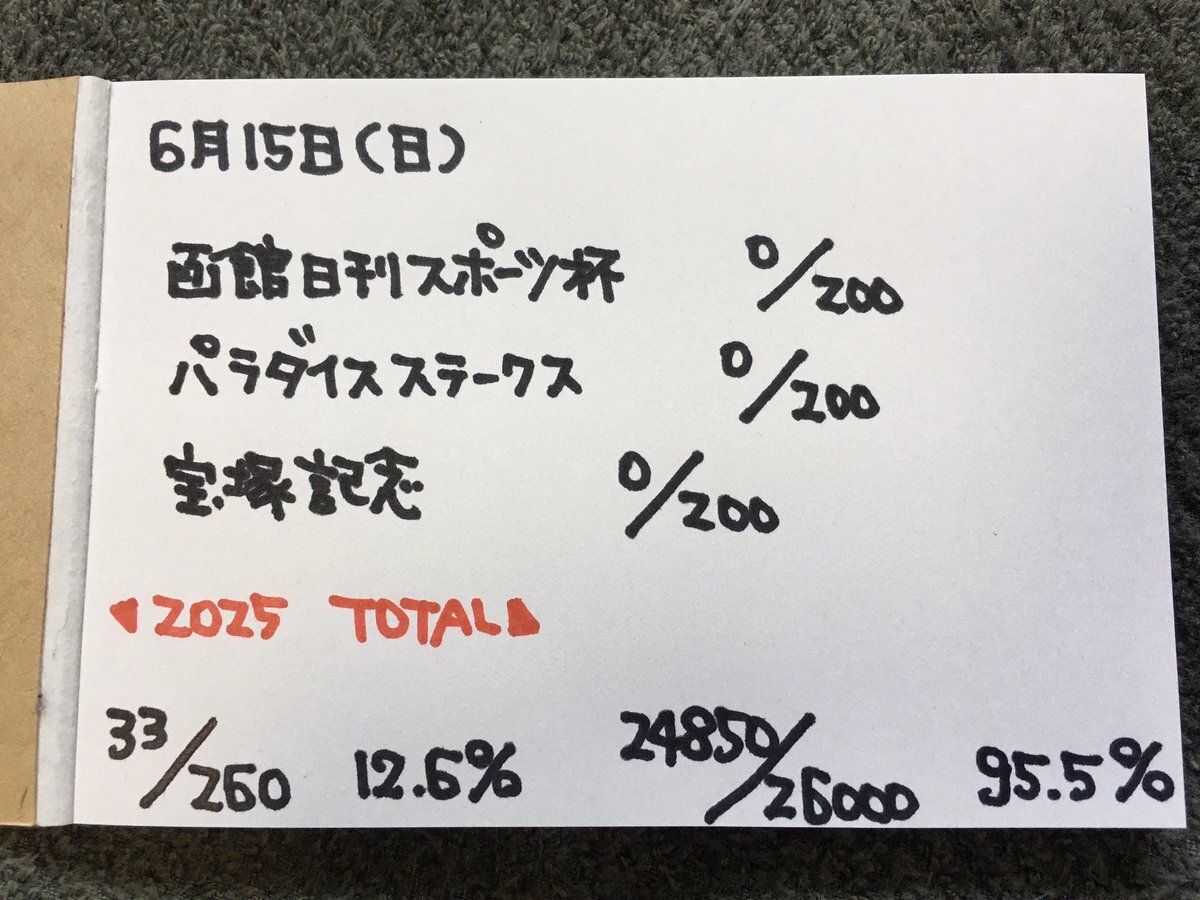 6月15日(日)
函館日刊スポーツ杯 0/200
パラダイスステークス 0/200
宝塚記念 0/200
◀2025 TOTAL▶
33/260 12.6% 24850/26000 95.5%